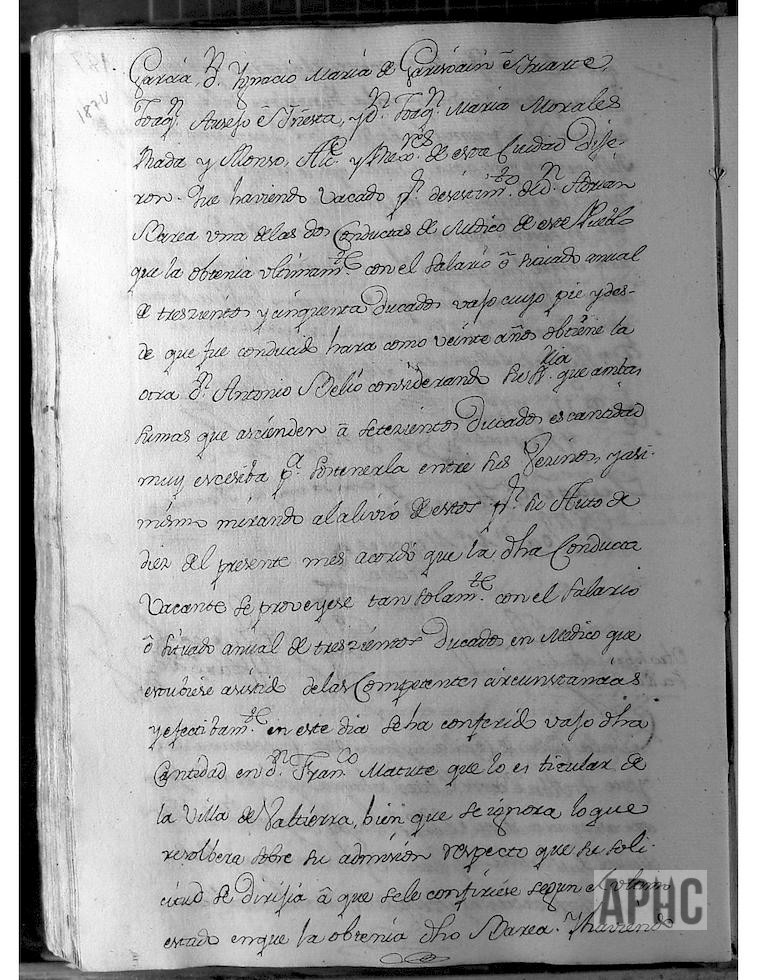 Garcia, Dn. Ygnacio Maria de Garisoain é Yriarte,
Joaqn. Ausejo é Yñesta, y Dn. Joaqn. Maria Morales
Rada y Alonso, Alce. y Rexores. de esta Ciudad Dije-
ron. Que haviendo Vacado pr. desistimto. de Dn. Adrian
Barea una de las dos Conductas de Medico de este Pueblo
que la obtenia ultimamte. con el salario ó situado anual
de trescientos y cinquenta Ducados vajo cuyo pie y des-
de que fue conducido hara como veinte años obtiene la
otra Dn. Antonio Belio considerando su Sria. que ambas
sumas que ascienden á setecientos Ducados es cantidad
muy excesiba pa. sostenerla entre sus Vecinos, y asi-
mismo mirando al alivio de estos pr. su Auto de
diez del presente mes acordó que la dha Conducta
Vacante se proveyese tan solamte. con el salario
ó situado anual de trescientos Ducados en Medico que
estubiese asistido de las Competentes circunstancias
y efectibamte. en este dia se ha conferido vajo dha
Cantidad en Dn. Franco. Matute que lo es titular de
la Villa de Valtierra, bien que se ignora lo que
resolbera sobre su admision respecto que su soli-
citud se dirijia á que se le confiriese segun el
estado en que la obtenia dho Barea. Y haviendo
APHC